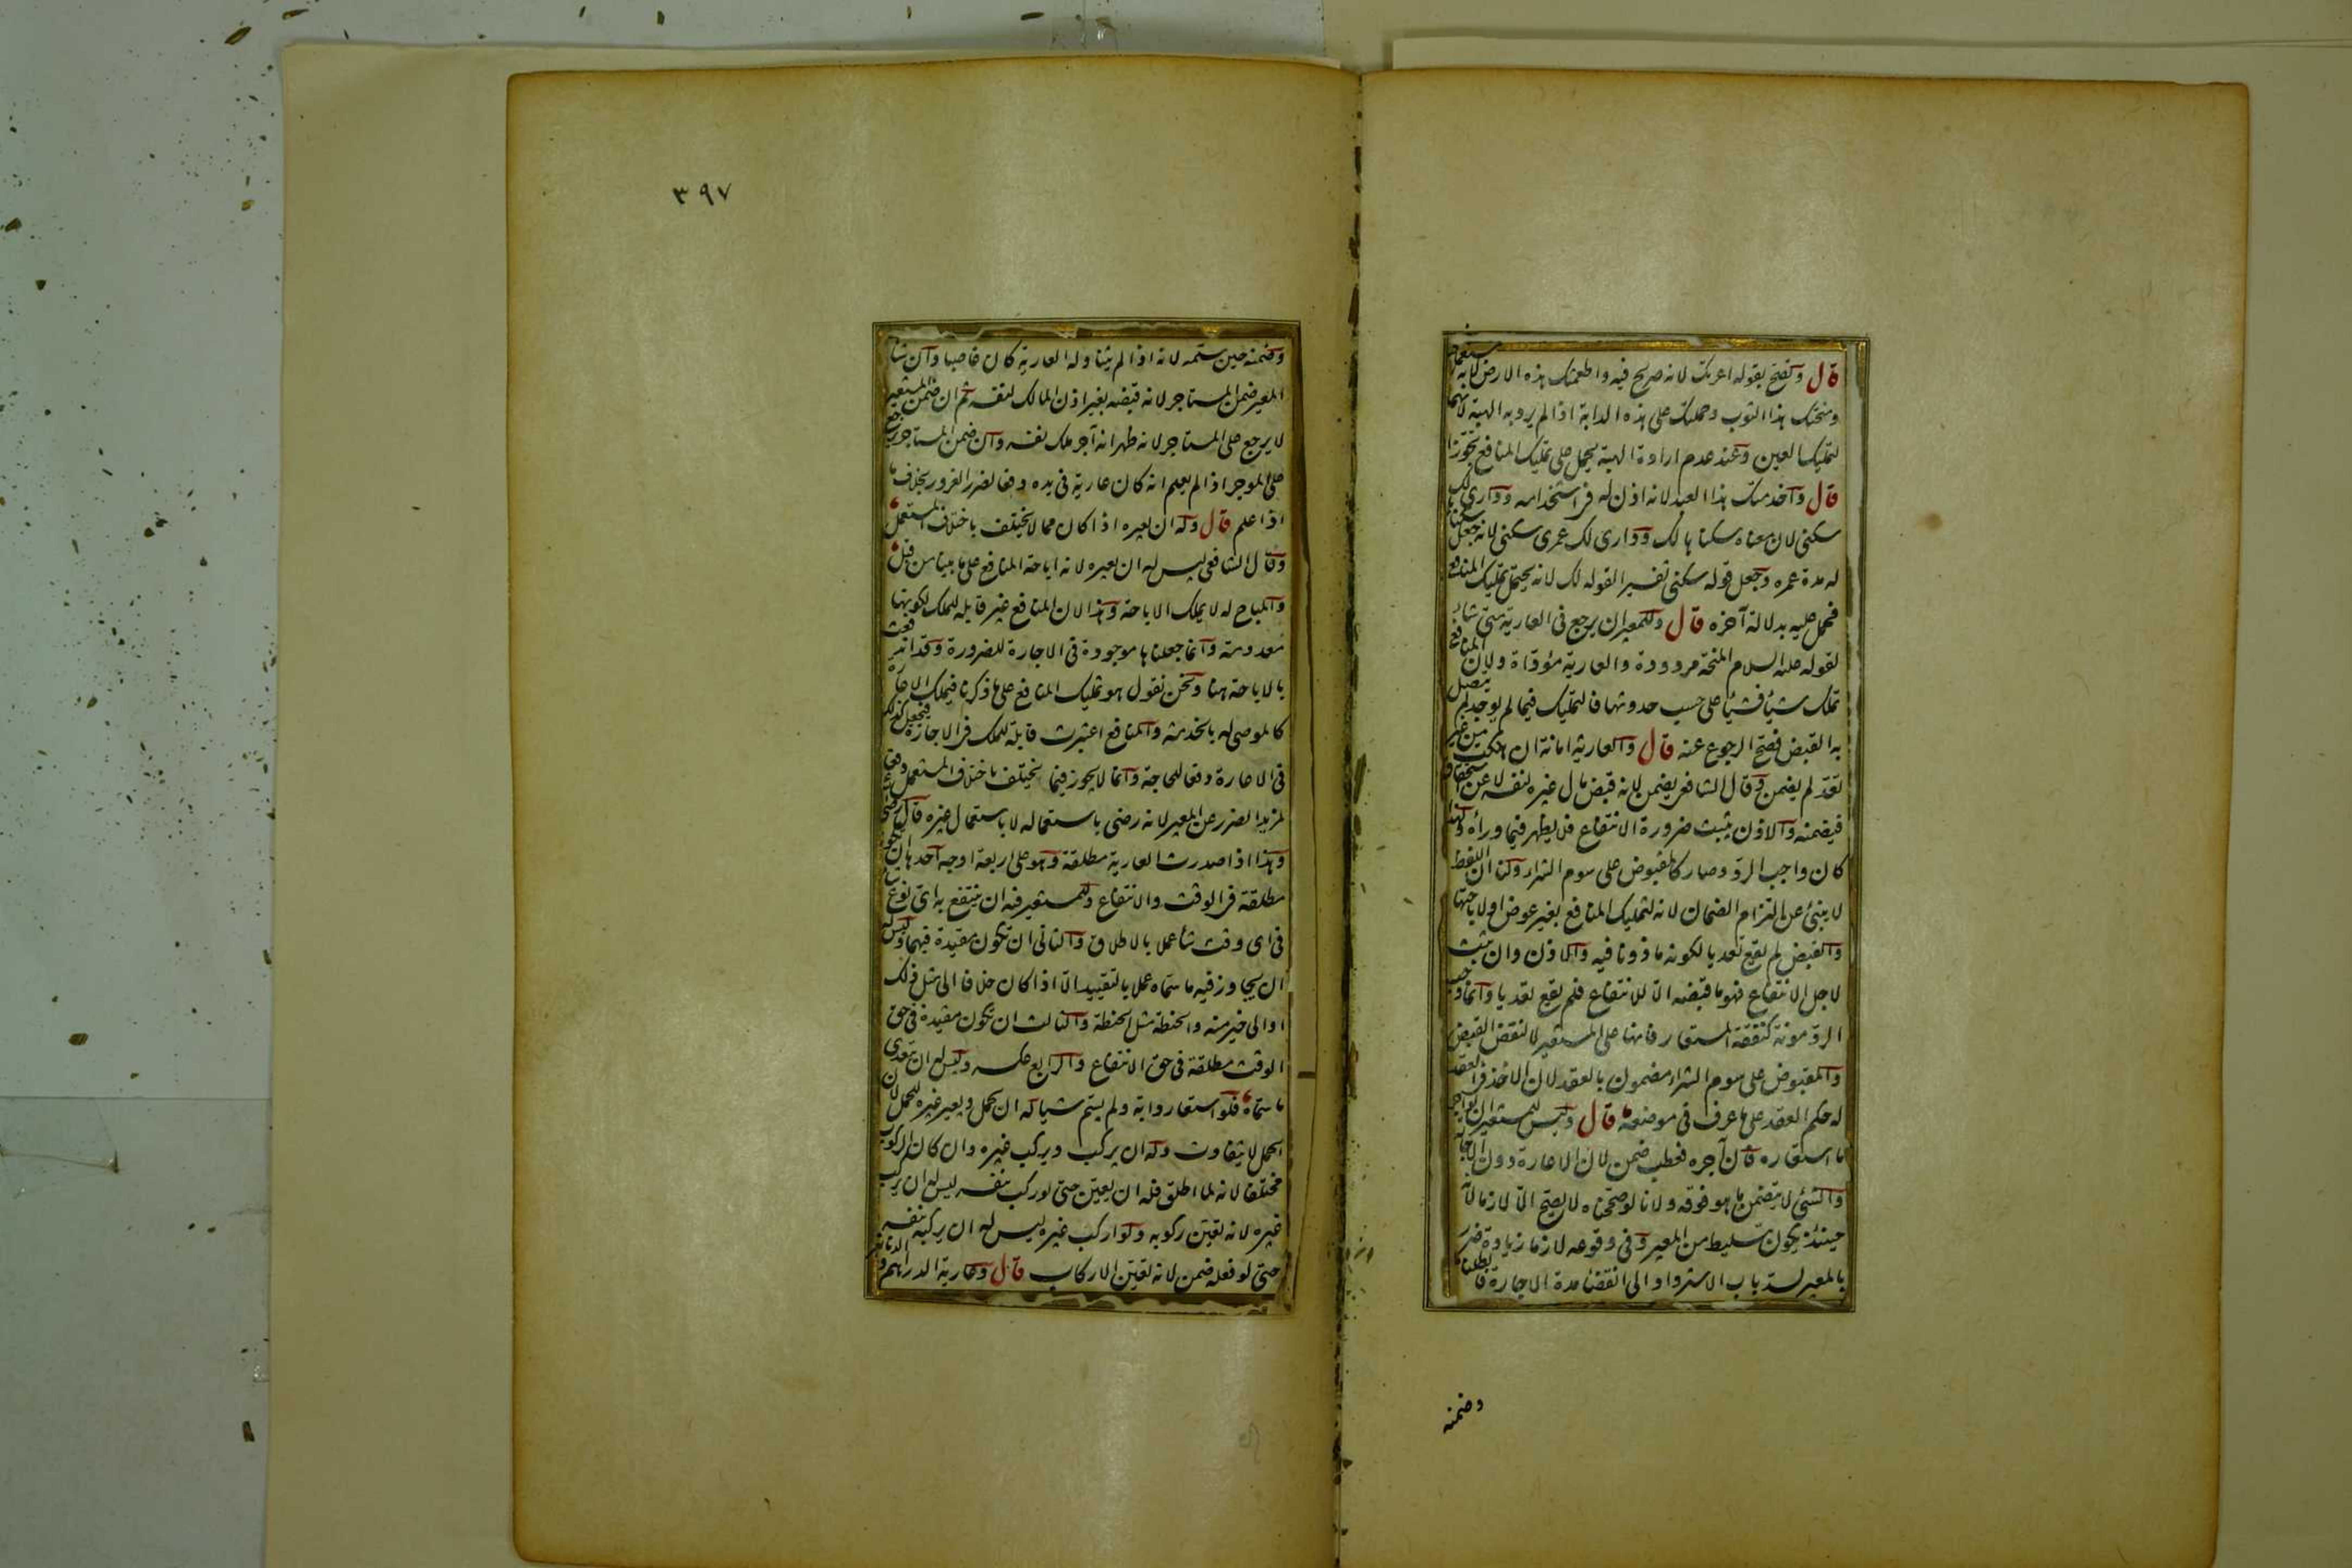 قال وتصح بقوله اعرتك لانه صريح فيه واطعمتك هذه الارض لانه مستعمل
ومنحتك هذا الثوب وحملتك على هذه الدابة اذا لم يرد به الهبة لانهما
لتمليك العين وعند عدم ارادة الهبة يحمل على تمليك المنافع تجوزا
قال واخدمتك هذا العبد لانه اذن له في استخدامه وداري لك
سكنى لان معناه سكناها لك وداري لك عمرى سكنى لانه جعل سكناها
له مدة عمره وجعل قوله سكنى تفسيرا لقوله لك لانه يحتمل تمليك المنافع
فحمل عليه بدلالة آخره قال وللمعير ان يرجع في العارية متى شاء
لقوله عليه السلام المنحة مردودة والعارية مؤداة ولان المنافع
تملك شيئا فشيئا على حسب حدوثها فالتمليك فيما لم يوجد لم يتصل
به القبض فصح الرجوع عنه قال والعارية امانة ان هلكت من غير
تعد لم يضمن وقال الشافعي يضمن لانه قبض مال غيره لنفسه لا عن استحقاق
فيضمنه والاذن يثبت ضرورة الانتفاع فلا يظهر فيما وراءه ولهذا
كان واجب الرد وصار كالمقبوض على سوم الشراء ولنا ان اللفظ
لا ينبئ عن التزام الضمان لانه لتمليك المنافع بغير عوض او لاباحتها
والقبض لم يقع تعديا لكونه ماذونا فيه والاذن وان يثبت
لاجل الانتفاع فهو ما قبضه الا للانتفاع فلم يقع تعديا وانما وجب
الرد مونة كنفقة المستعار فانها على المستعير لا لنقض القبض
والمقبوض على سوم الشراء مضمون بالعقد لان الاخذ في العقد
له حكم العقد على ما عرف في موضعه قال وليس للمستعير ان يواجر
ما استعاره فان آجره فعطب ضمن لان الاعارة دون الاجارة
والشئ لا يتضمن ما هو فوقه ولانا لو صححناه لا يصح الا لازما لانه
حينئذ يكون بتسليط من المعير وفي وقوعه لازما زيادة ضرر
بالمعير لسد باب الاسترداد الى انقضاء مدة الاجارة فابطلناه
وضمنه
٣٩٧
وضمنه حين سلمه لانه اذا لم يتناوله العارية كان غاصبا وان شاء
المعير ضمن المستاجر لانه قبضه بغير اذن المالك لنفسه ثم ان ضمن المستعير
لا يرجع على المستاجر لانه ظهر انه آجر ملك نفسه وان ضمن المستاجر يرجع
على الموجر اذا لم يعلم انه كان عارية في يده دفعا لضرر الغرور بخلاف ما
اذا علم قال وله ان يعيره اذا كان مما لا يختلف باختلاف المستعمل
وقال الشافعي ليس له ان يعيره لانه اباحة المنافع على ما بينا من قبل
والمباح له لا يملك الاباحة وهذا لان المنافع غير قابلة للملك لكونها
معدومة وانما جعلناها موجودة في الاجارة للضرورة وقد اندفعت
بالاباحة هنا ونحن نقول هو تمليك المنافع على ما ذكرنا فيملك الاعارة
كالموصى له بالخدمة والمنافع اعتبرت قابلة للملك في الاجارة فيجعل كذلك
في الاعارة دفعا للحاجة وانما لا يجوز فيما يختلف باختلاف المستعمل دفعا
لمزيد الضرر عن المعير لانه رضي باستعماله لا باستعمال غيره قال
وهذا اذا صدرت العارية مطلقة وهو على اربعة اوجه احدها ان تكون
مطلقة في الوقت والانتفاع وللمستعير فيه ان ينتفع به اي نوع شاء
في اي وقت شاء عملا بالاطلاق والثاني ان تكون مقيدة فيهما وليس له
ان يجاوز فيه ما سماه عملا بالتقييد الا اذا كان خلافا الى مثل ذلك
او الى خير منه والحنطة مثل الحنطة والثالث ان تكون مقيدة في حق
الوقت مطلقة في حق الانتفاع والرابع عكسه وليس له ان يتعدى
ما سماه فلو استعار دابة ولم يسم شيئا له ان يحمل ويعير غيره للحمل لان
الحمل لا يتفاوت وله ان يركب ويركب غيره وان كان الركوب
مختلفا لانه لما اطلق فله ان يعين حتى لو ركب بنفسه ليس له ان يركب
غيره لانه تعين ركوبه ولو اركب غيره ليس له ان يركبه بنفسه
حتى لو فعله ضمن لانه تعين الاركاب قال وعارية الدراهم والدنانير